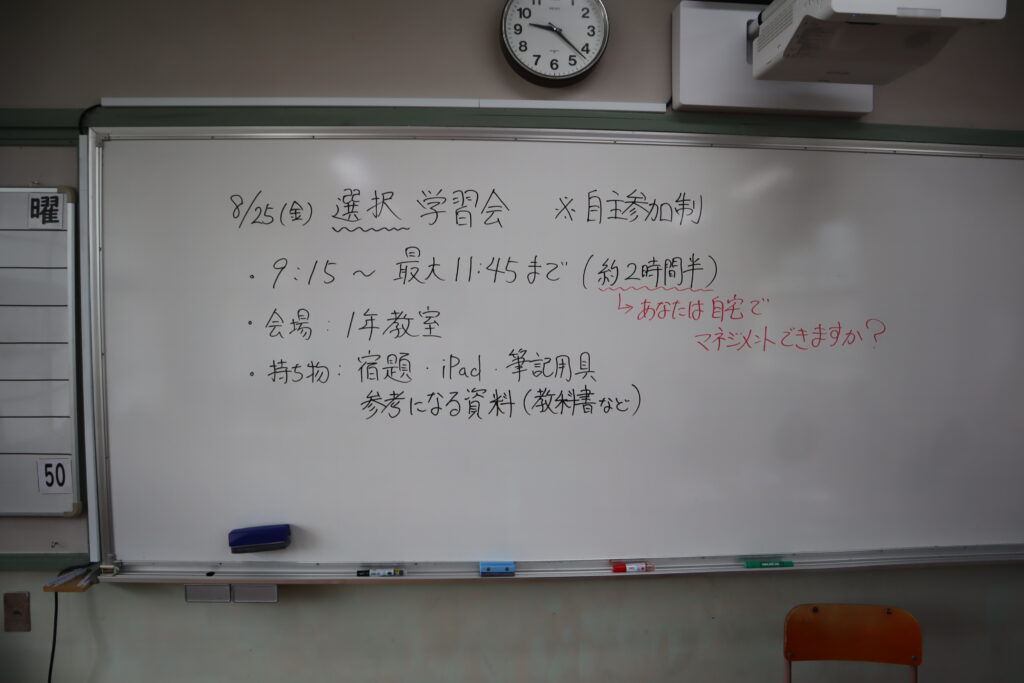 8/25(金) 選択 学習会 ※自主参加制
・9:15 ～ 最大11:45まで (約2時間半)
↳あなたは自宅で
マネジメントできますか?
・会場: 1年教室
・持ち物: 宿題・iPad・筆記用具
参考になる資料(教科書など)
曜
50
10 2 9 3 8 4 7 6 5